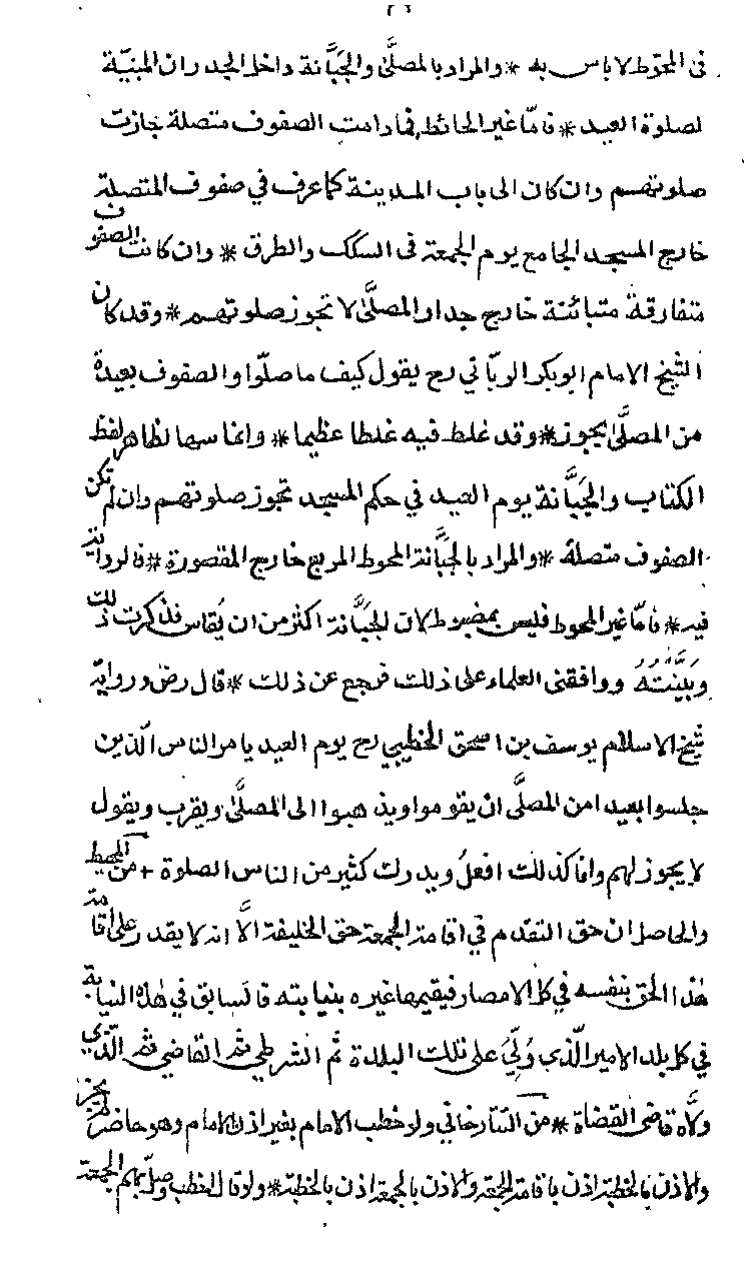 ٢٦
فى المحوّط لا باس به * والمراد بالمصلَّىٰ والجَبَّانة داخل الجدران المبنيّة
لصلوة العيد * فامّا غير الحائط فما دامت الصفوف متصلة جازت
صلوتهم وان كان الى باب المدينة كما عرف في صفوف المتصلة
خارج المسجد الجامع يوم الجمعة فى السكك والطرق * وان كانت الصفوف
متفارقة متبائنة خارج جدار المصلَّىٰ لا تجوز صلوتهم * وقد كان
الشيخ الامام ابوبكر الربّاني رح يقول كيف ما صلّوا والصفوف بعيدة
من المصلَّىٰ يجوز * وقد غلط فيه غلطا عظيما * وانما سها لظاهر لفظ
الكتاب والجَبَّانة يوم العيد في حكم المسجد تجوز صلوتهم وان لم تكن
الصفوف متصلة * والمراد بالجَبَّانة المحوط المربع خارج المقصورة * فالرواية
فيه * فامّا غير المحوط فليس بمضبوط لان الجَبَّانة اكثر من ان يُقاس فذكرت ذلك
وبَيَّنْتُهُ ووافقنى العلماء على ذلك فرجع عن ذلك * قال رض ورواية
شيخ الاسلام يوسف بن اسحق الخطيبي رح يوم العيد يامر الناس الّذين
جلسوا بعيدا من المصلَّى ان يقوموا ويذهبوا الى المصلَّىٰ ويقرب ويقول
لا يجوز لهم وانا كذلك افعلُ ويدرك كثير من الناس الصلوة + من المحيط
والحاصل ان حق التقدم في اقامة الجمعة حق الخليفة الَّا انه لا يقدر على اقامة
هٰذا الحق بنفسه في كل الامصار فيقيمها غيره بنيابته فالسابق في هٰذه النيابة
في كل بلد الامير الّذي وُلِّيَ على تلك البلدة ثم الشرطي ثم القاضي ثم الّذي
ولَّاه قاضى القضاة * من التتارخاني ولو خطب الامام بغير اذن الامام وهو حاضر لم يجز
والاذن بالخطبة اذن باقامة الجمعة والاذن بالجمعة اذن بالخطبة * ولو قال اخطب وصلّ بهم الجمعة